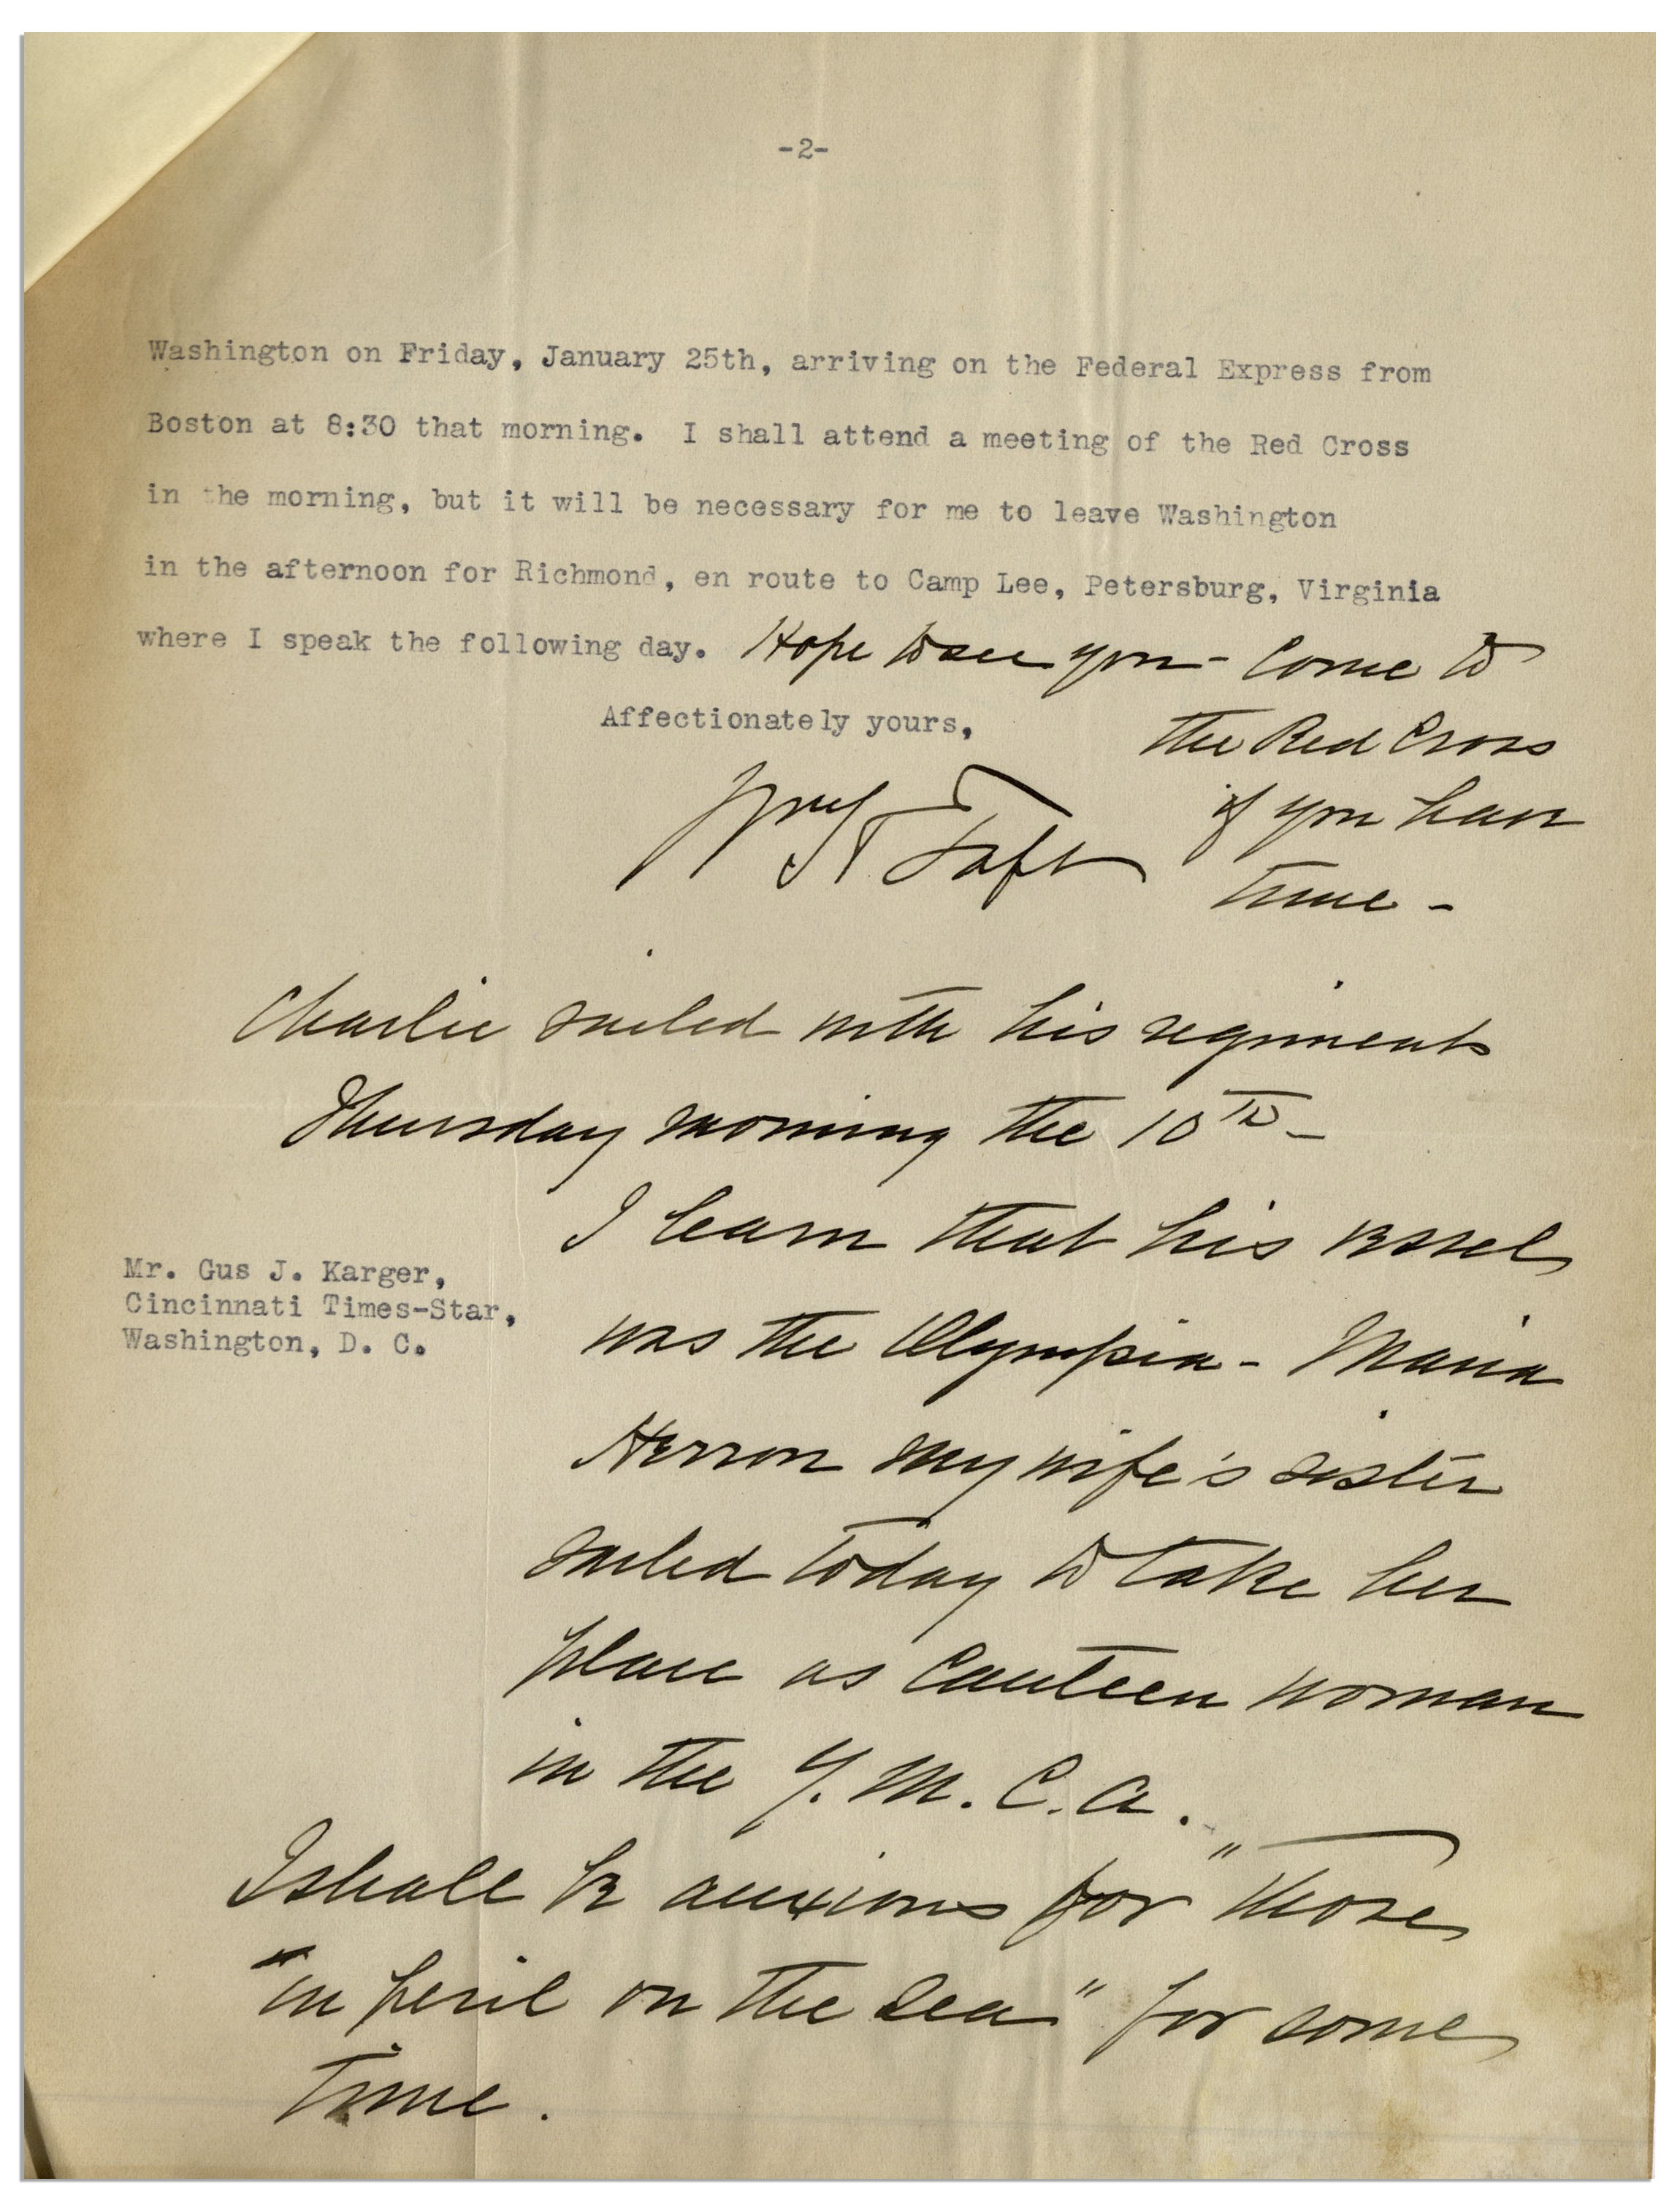 -2-
Washington on Friday, January 25th, arriving on the Federal Express from
Boston at 8:30 that morning. I shall attend a meeting of the Red Cross
in the morning, but it will be necessary for me to leave Washington
in the afternoon for Richmond, en route to Camp Lee, Petersburg, Virginia
where I speak the following day. Hope to see you - Come to
the Red Cross
if you have
time -
Affectionately yours,
Wm H Taft
Charlie sailed with his regiment
Thursday morning the 10th -
I learn that his vessel
was the Olympia - Maria
Herron my wife's sister
sailed today to take her
place as Canteen woman
in the Y. M. C. A.
I shall be anxious for "those
"in peril on the sea" for some
time.
Mr. Gus J. Karger,
Cincinnati Times-Star,
Washington, D. C.